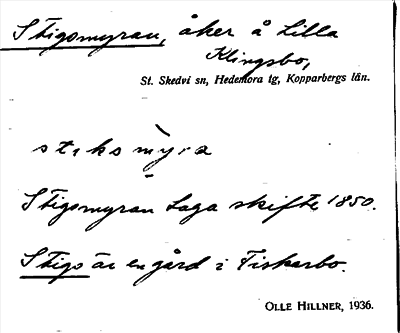 Stigsmyran, åker å Lilla
Klingsbo,
St. Skedvi sn, Hedemora tg, Kopparbergs län.
Stigsmyran Laga skifte 1850.
Stigs är en gård i Fiskarbo.
OLLE HILLNER, 1936.